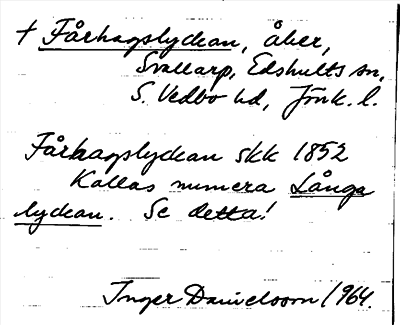 † Fårhagslyckan, åker,
Svallarp, Edshults sn,
S. Vedbo hd, Jönk. l.
Fårhagslyckan skk 1852
Kallas numera Långa
lyckan. Se detta!
Inger Danielsson 1964.